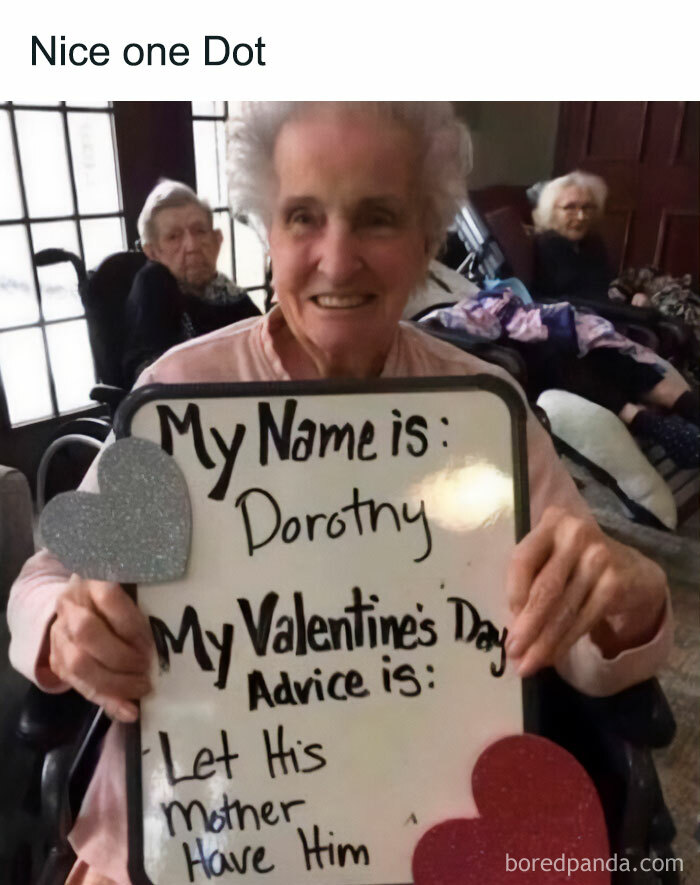 Nice one Dot
My Name is:
Dorothy
My Valentine's Day
Advice is:
-Let His
Mother
Have Him
boredpanda.com